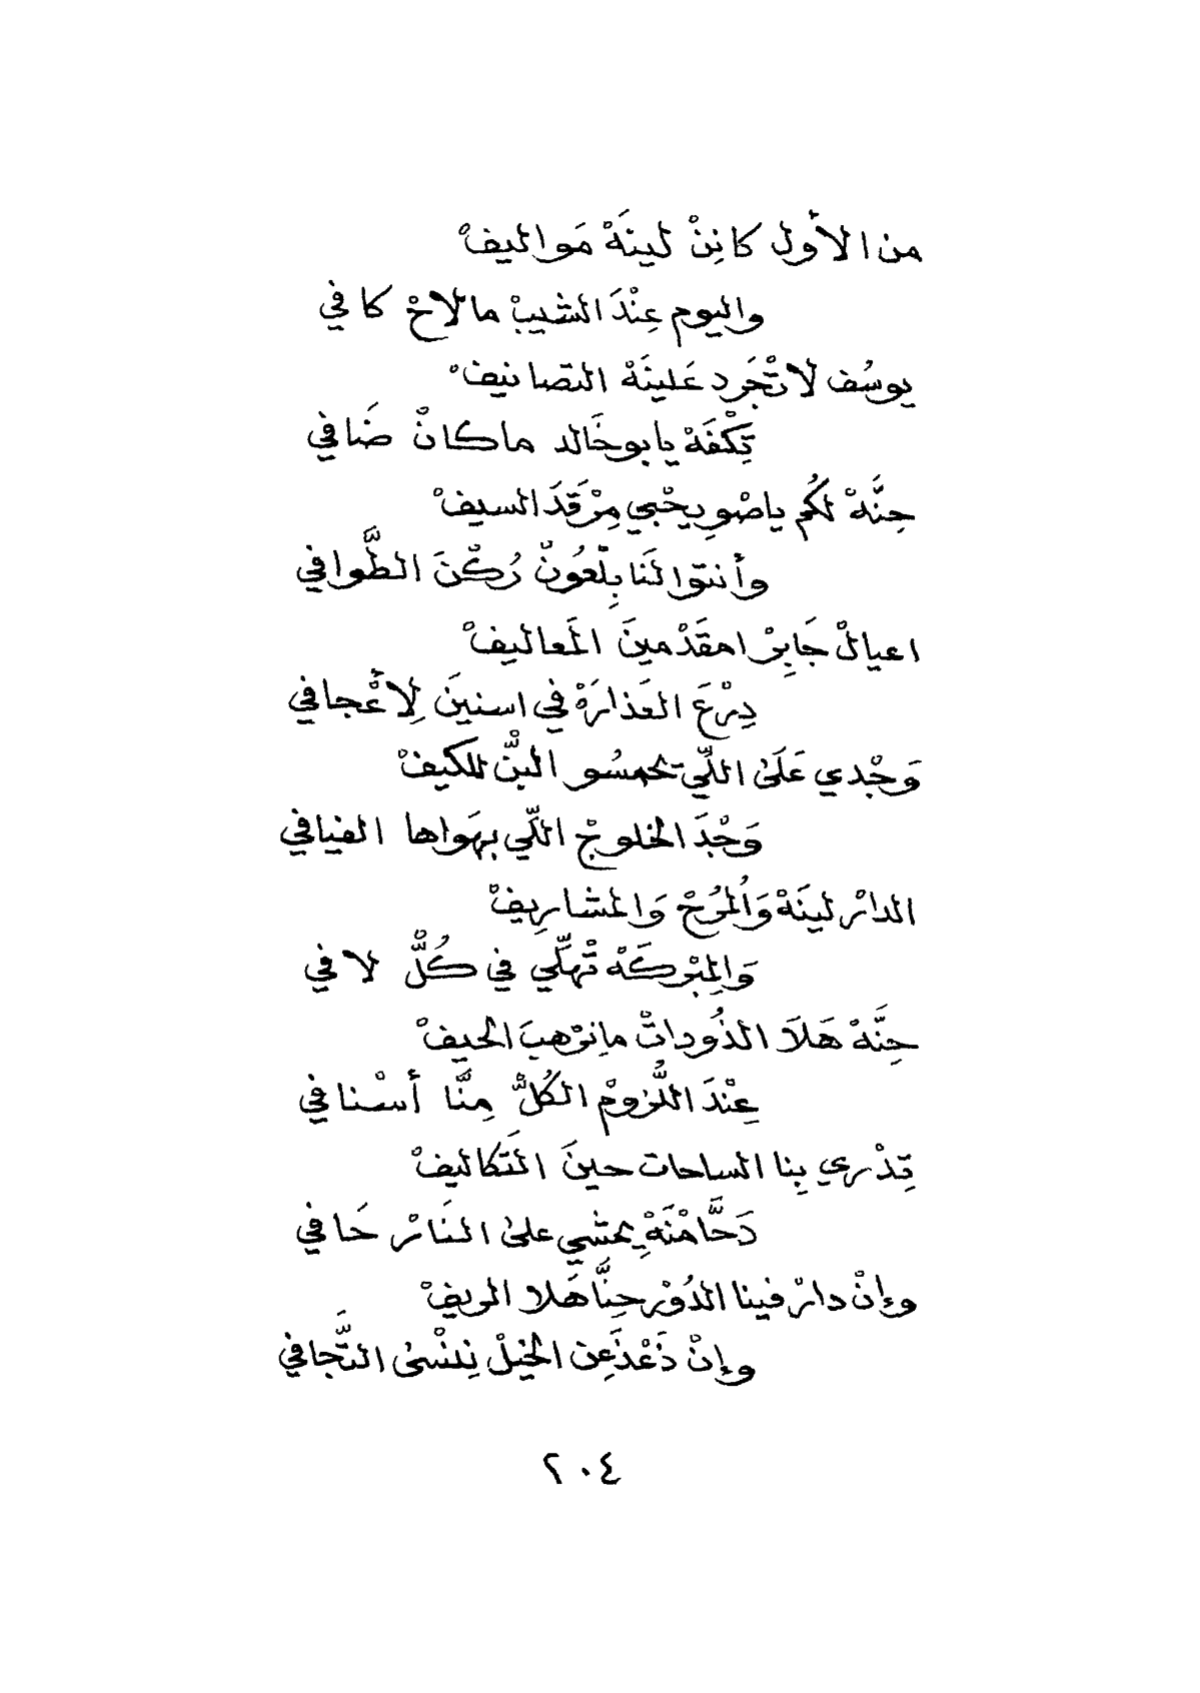 من الأول كانِنْ لينَهْ مَواليفْ
واليوم عِنْدَ الشيبْ مالاحْ كافي
يوسُف لاتْجَرد عَلينَهْ التصانيفْ
تِكْفَهْ يابوخَالد ماكانْ ضَافي
حِنَّهْ لكُم ياصْو يحْبي مِرْقَدَ السيفْ
وأنتوا لنَا بِلْعُونْ رُكْنَ الطَّوافي
اعيالْ جَابِرْ امقَدْمينَ المَعاليفْ
دِرْعَ العَذارَهْ في اسنينَ لِأعْجافي
وَجْدي عَلَىٰ اللّي تحْمسُو البنَّ للكيفْ
وَجْدَ الخلوجْ اللّي بهَواها الفيافي
الدارْ لينَهْ وَالمُرْخْ وَالمشارِيفْ
وَالمِبْركَهْ تْهلّي في كُلَّ لافي
حِنَّهْ هَلَا الذُوداتْ مانرْهبَ الحيفْ
عِنْدَ اللُّزومْ الكُلَّ مِنَّا أسْنافي
تِدْري بِنا الساحات حينَ المَتَكاليفْ
دَحَّامْنَهْ يمشي علىٰ النَارْ حَافي
وإنْ دارْ فينا الدُوْر حِنَّا هَلا الريفْ
وإنْ ذَعْذَعِن الخيلْ نِنْسىٰ التَّجافي
٢٠٤